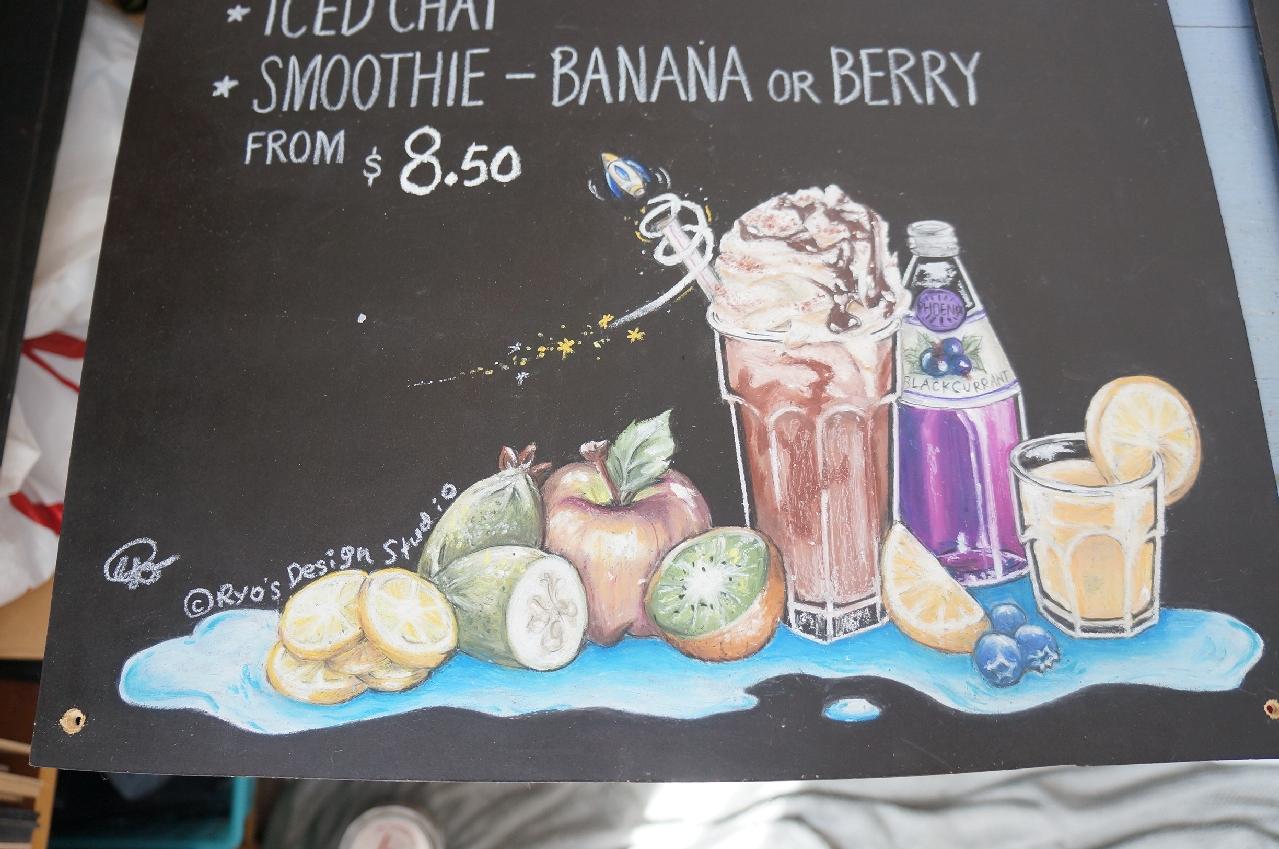 * ICED CHAI
* SMOOTHIE – BANANA OR BERRY
FROM $ 8.50
PHOENIX
BLACKCURRANT
©Ryo's Design Studio